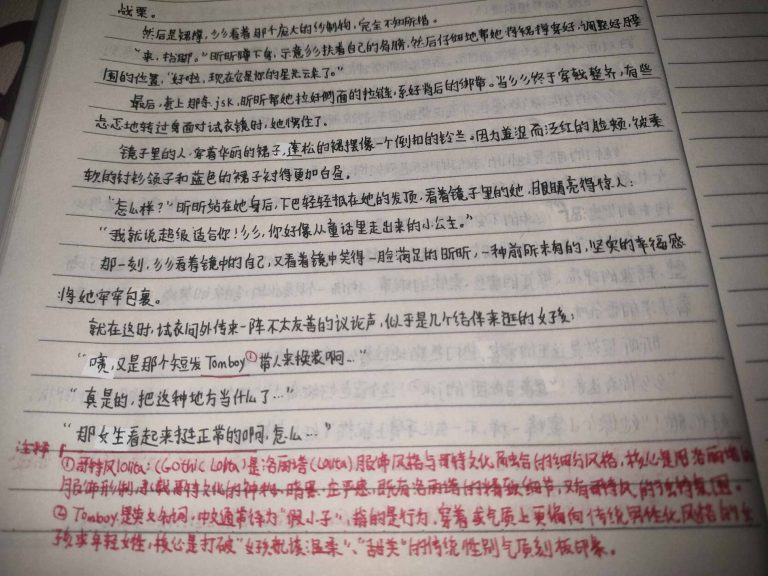 战栗。
然后是裙撑,彡彡看着那个庞大的纱制物,完全不知所措。
"来,抬脚。"昕昕蹲下身,示意彡彡扶着自己的肩膀,然后仔细地帮她将裙撑穿好,调整好腰
围的位置,"好啦,现在它是你的星光云朵了。"
最后,套上那条jsk,昕昕帮她拉好侧面的拉链,系好背后的绑带。当彡彡终于穿戴整齐,有些
忐忑地转过身面对试衣镜时,她愣住了。
镜子里的人,穿着华丽的裙子,蓬松的裙摆像一个倒扣的铃兰。因为羞涩而泛红的脸颊,被柔
软的衬衫领子和蓝色的裙子衬得更加白皙。
"怎么样?"昕昕站在她身后,下巴轻轻抵在她的发顶,看着镜子里的她,眼睛亮得惊人:
"我就说超级适合你!彡彡,你好像从童话里走出来的小公主。"
那一刻,彡彡看着镜中的自己,又看着镜中笑得一脸满足的昕昕,一种前所未有的,坚实的幸福感
将她牢牢包裹。
就在这时,试衣间外传来一阵不太友善的议论声,似乎是几个结伴来逛的女孩:
"啧,又是那个短发Tomboy②带人来换装啊…"
"真是的,把这种地方当什么了…"
"那女生看起来挺正常的啊,怎么…"
注释
①哥特风lolita:(Gothic Lolita)是洛丽塔(Lolita)服饰风格与哥特文化融合的细分风格,核心是用洛丽塔的
服饰形制,承载哥特文化的神秘、暗黑、庄严感,既有洛丽塔的精致细节,又有哥特风的独特氛围。
②Tomboy是英文单词,中文通常译为"假小子",指的是行为、穿着或气质上更偏向传统男性化风格的女
孩或年轻女性,核心是打破"女孩就该温柔"、"甜美"的传统性别气质刻板印象。